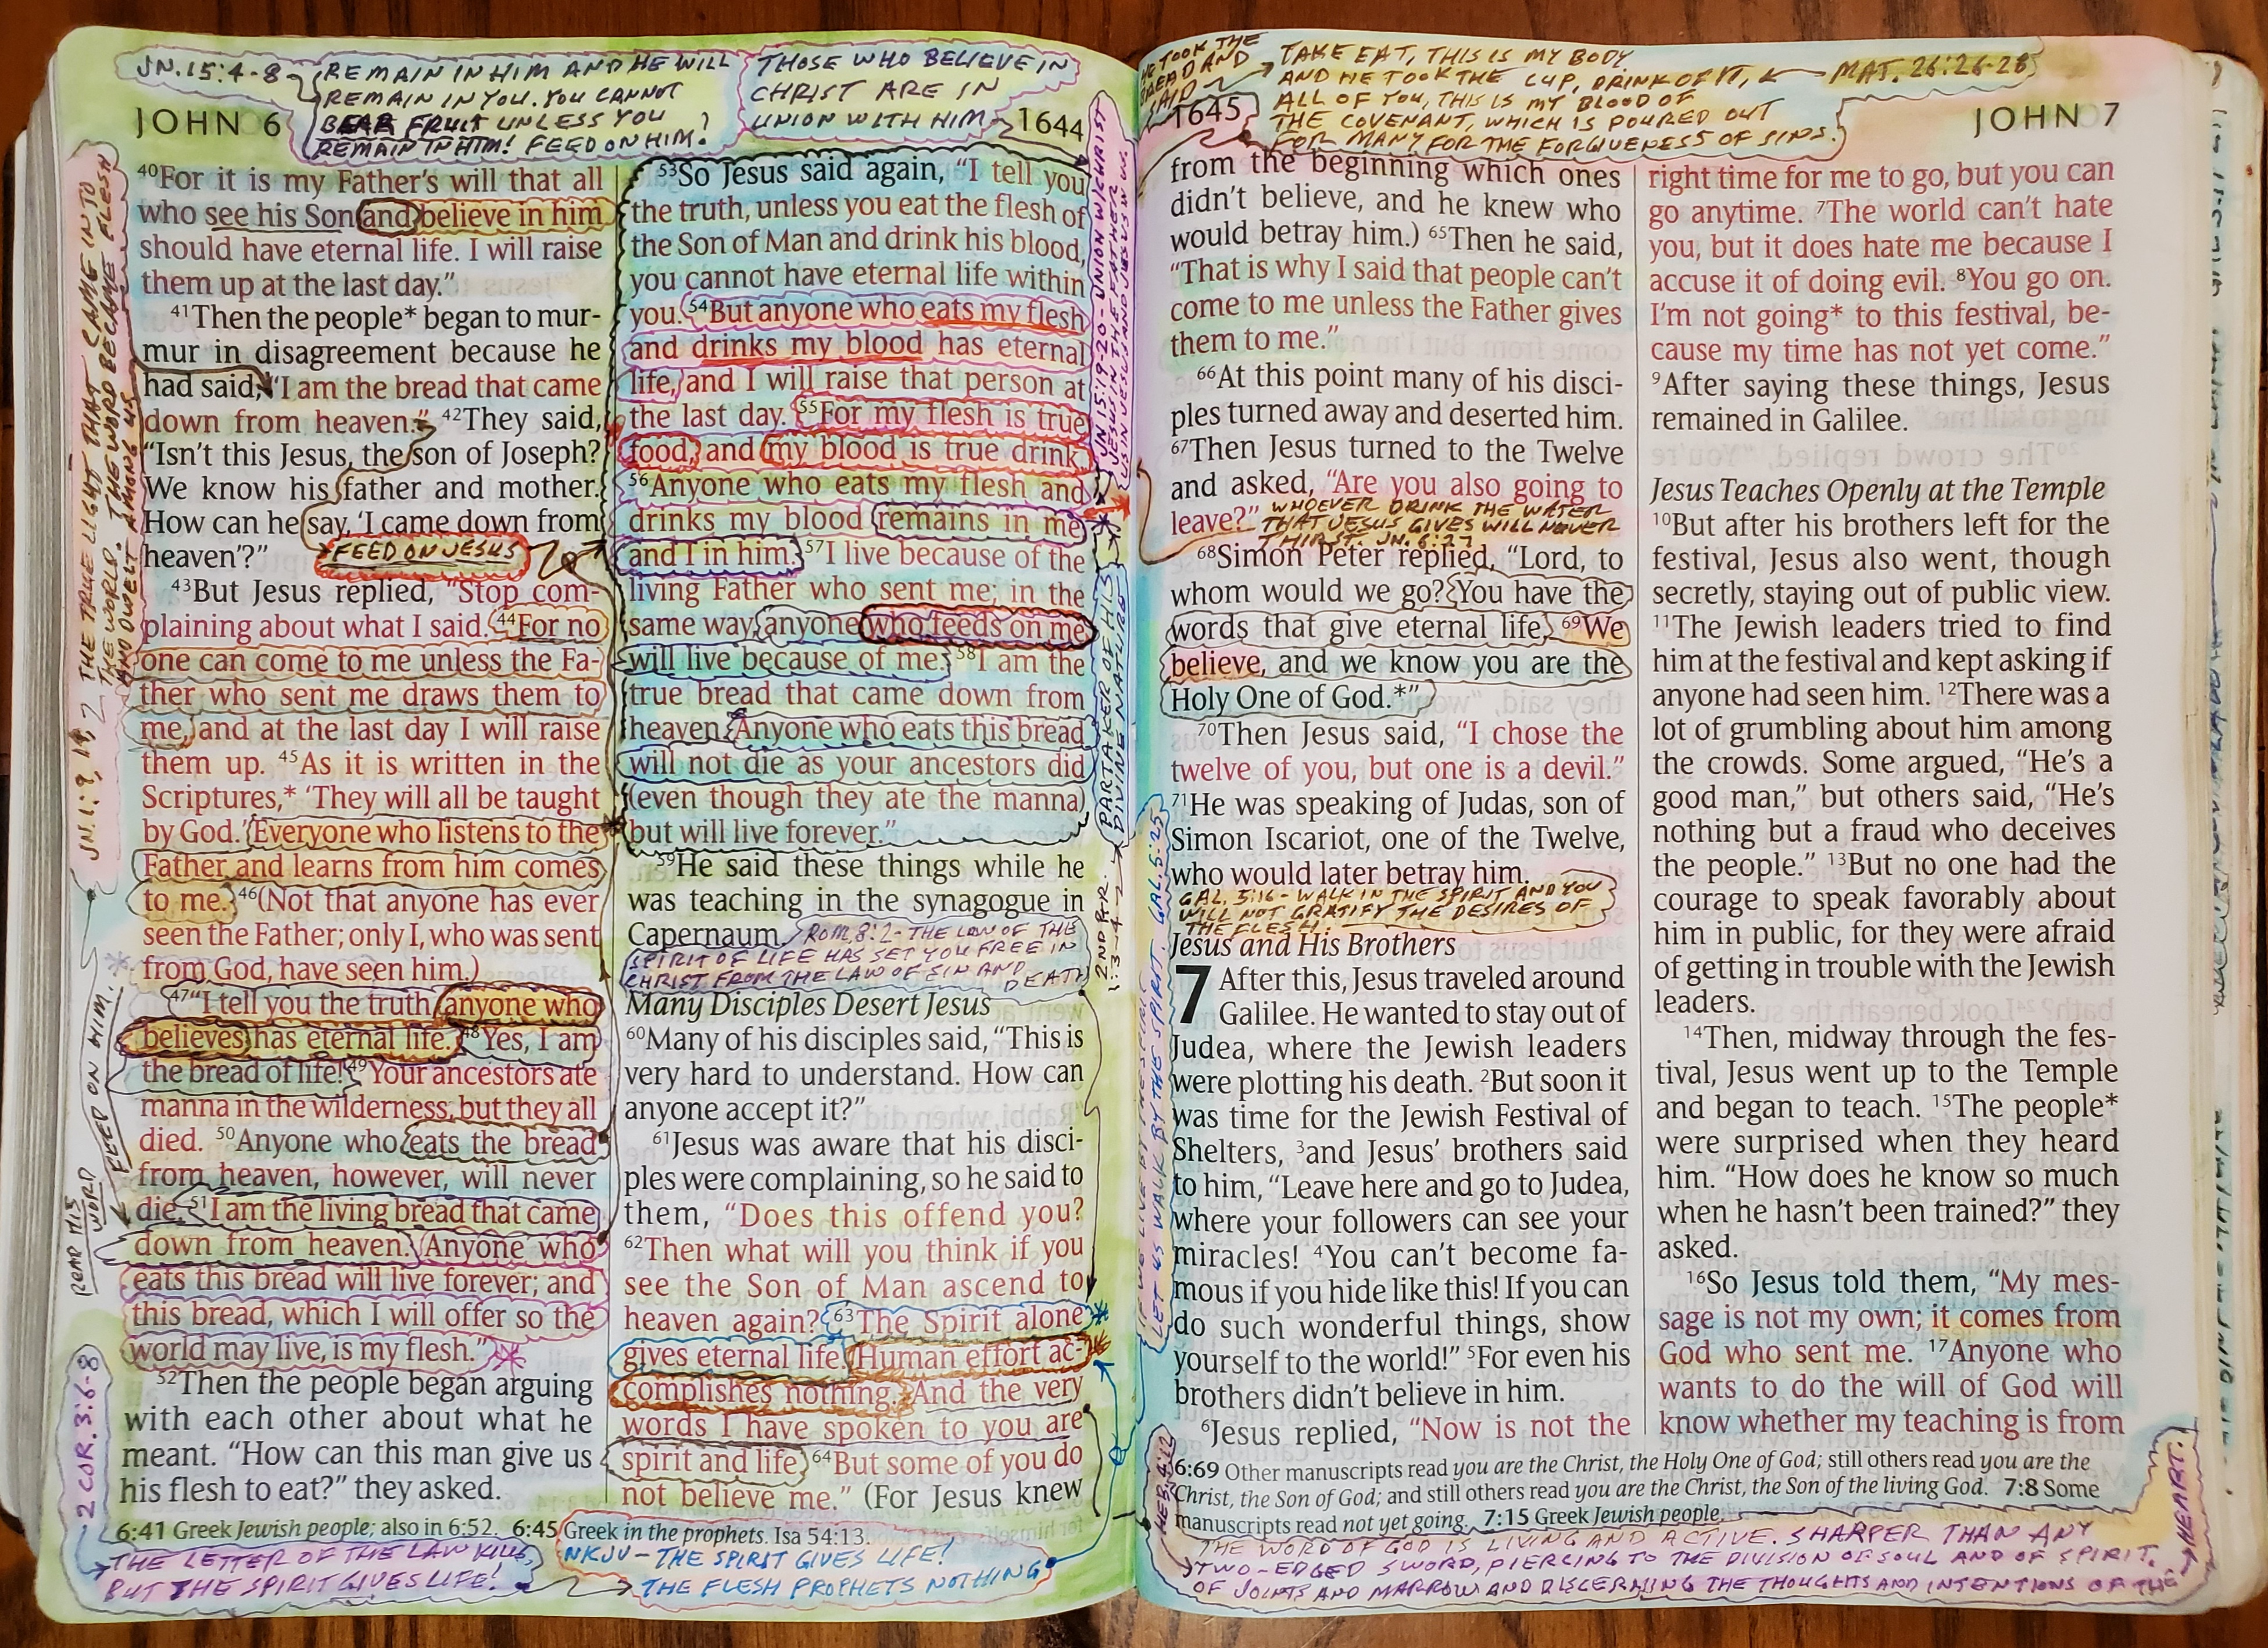 JN. 15:4-8
REMAIN IN HIM AND HE WILL
REMAIN IN YOU. YOU CANNOT
BEAR FRUIT UNLESS YOU
REMAIN IN HIM! FEED ON HIM!
THOSE WHO BELIEVE IN
CHRIST ARE IN
UNION WITH HIM
JOHN 6
1644
JN. 1:9, 14
THE TRUE LIGHT THAT CAME INTO
THE WORLD. THE WORD BECAME FLESH
AND DWELT AMONG US
40For it is my Father's will that all
who see his Son and believe in him
should have eternal life. I will raise
them up at the last day.”
41Then the people* began to mur-
mur in disagreement because he
had said, “I am the bread that came
down from heaven.” 42They said,
“Isn't this Jesus, the son of Joseph?
We know his father and mother.
How can he say, ‘I came down from
heaven’?”
FEED ON JESUS
43But Jesus replied, “Stop com-
plaining about what I said. 44For no
one can come to me unless the Fa-
ther who sent me draws them to
me, and at the last day I will raise
them up. 45As it is written in the
Scriptures,* ‘They will all be taught
by God.’ Everyone who listens to the
Father and learns from him comes
to me. 46(Not that anyone has ever
seen the Father; only I, who was sent
from God, have seen him.)
47“I tell you the truth, anyone who
believes has eternal life. 48Yes, I am
the bread of life! 49Your ancestors ate
manna in the wilderness, but they all
died. 50Anyone who eats the bread
from heaven, however, will never
die. 51I am the living bread that came
down from heaven. Anyone who
eats this bread will live forever; and
this bread, which I will offer so the
world may live, is my flesh.”
52Then the people began arguing
with each other about what he
meant. “How can this man give us
his flesh to eat?” they asked.
FEED ON HIM.
READ HIS
WORD
2 COR. 3:6-8
53So Jesus said again, “I tell you
the truth, unless you eat the flesh of
the Son of Man and drink his blood,
you cannot have eternal life within
you. 54But anyone who eats my flesh
and drinks my blood has eternal
life, and I will raise that person at
the last day. 55For my flesh is true
food, and my blood is true drink.
56Anyone who eats my flesh and
drinks my blood remains in me
and I in him. 57I live because of the
living Father who sent me; in the
same way, anyone who feeds on me
will live because of me. 58I am the
true bread that came down from
heaven. Anyone who eats this bread
will not die as your ancestors did
(even though they ate the manna)
but will live forever.”
59He said these things while he
was teaching in the synagogue in
Capernaum.
ROM. 8:2 - THE LAW OF THE
SPIRIT OF LIFE HAS SET YOU FREE IN
CHRIST FROM THE LAW OF SIN AND
DEATH
Many Disciples Desert Jesus
60Many of his disciples said, “This is
very hard to understand. How can
anyone accept it?”
61Jesus was aware that his disci-
ples were complaining, so he said to
them, “Does this offend you?
62Then what will you think if you
see the Son of Man ascend to
heaven again? 63The Spirit alone
gives eternal life. Human effort ac-
complishes nothing. And the very
words I have spoken to you are
spirit and life. 64But some of you do
not believe me.” (For Jesus knew
UNION W/CHRIST
JESUS IN THE FATHER
US IN JESUS AND JESUS IN US.
PARTAKER OF HIS
DIVINE NATURE
2ND PTR.
1:3-4
6:41 Greek Jewish people; also in 6:52. 6:45 Greek in the prophets. Isa 54:13.
THE LETTER OF THE LAW KILLS,
BUT THE SPIRIT GIVES LIFE!
NKJV - THE SPIRIT GIVES LIFE!
THE FLESH PROPHETS NOTHING
HE TOOK THE
BREAD AND
SAID
TAKE EAT, THIS IS MY BODY
AND HE TOOK THE CUP, DRINK OF IT,
ALL OF YOU, THIS IS MY BLOOD OF
THE COVENANT, WHICH IS POURED OUT
FOR MANY FOR THE FORGIVENESS OF SINS.
MAT. 26:26-28
1645
JOHN 7
from the beginning which ones
didn't believe, and he knew who
would betray him.) 65Then he said,
“That is why I said that people can't
come to me unless the Father gives
them to me.”
66At this point many of his disci-
ples turned away and deserted him.
67Then Jesus turned to the Twelve
and asked, “Are you also going to
leave?”
WHOEVER DRINK THE WATER
THAT JESUS GIVES WILL NEVER
THIRST. JN. 6:27
68Simon Peter replied, “Lord, to
whom would we go? You have the
words that give eternal life. 69We
believe, and we know you are the
Holy One of God.*”
70Then Jesus said, “I chose the
twelve of you, but one is a devil.”
71He was speaking of Judas, son of
Simon Iscariot, one of the Twelve,
who would later betray him.
GAL. 5:16 - WALK IN THE SPIRIT AND YOU
WILL NOT GRATIFY THE DESIRES OF
THE FLESH.
Jesus and His Brothers
7 After this, Jesus traveled around
Galilee. He wanted to stay out of
Judea, where the Jewish leaders
were plotting his death. 2But soon it
was time for the Jewish Festival of
Shelters, 3and Jesus' brothers said
to him, “Leave here and go to Judea,
where your followers can see your
miracles! 4You can't become fa-
mous if you hide like this! If you can
do such wonderful things, show
yourself to the world!” 5For even his
brothers didn't believe in him.
6Jesus replied, “Now is not the
IF WE LIVE BY THE SPIRIT
LET US WALK BY THE SPIRIT. GAL. 5:25
right time for me to go, but you can
go anytime. 7The world can't hate
you, but it does hate me because I
accuse it of doing evil. 8You go on.
I'm not going* to this festival, be-
cause my time has not yet come.”
9After saying these things, Jesus
remained in Galilee.
Jesus Teaches Openly at the Temple
10But after his brothers left for the
festival, Jesus also went, though
secretly, staying out of public view.
11The Jewish leaders tried to find
him at the festival and kept asking if
anyone had seen him. 12There was a
lot of grumbling about him among
the crowds. Some argued, “He's a
good man,” but others said, “He's
nothing but a fraud who deceives
the people.” 13But no one had the
courage to speak favorably about
him in public, for they were afraid
of getting in trouble with the Jewish
leaders.
14Then, midway through the fes-
tival, Jesus went up to the Temple
and began to teach. 15The people*
were surprised when they heard
him. “How does he know so much
when he hasn't been trained?” they
asked.
16So Jesus told them, “My mes-
sage is not my own; it comes from
God who sent me. 17Anyone who
wants to do the will of God will
know whether my teaching is from
6:69 Other manuscripts read you are the Christ, the Holy One of God; still others read you are the
Christ, the Son of God; and still others read you are the Christ, the Son of the living God. 7:8 Some
manuscripts read not yet going. 7:15 Greek Jewish people.
HEB. 4:12
THE WORD OF GOD IS LIVING AND ACTIVE. SHARPER THAN ANY
TWO-EDGED SWORD, PIERCING TO THE DIVISION OF SOUL AND OF SPIRIT,
OF JOINTS AND MARROW AND DISCERNING THE THOUGHTS AND INTENTIONS OF THE
HEART.